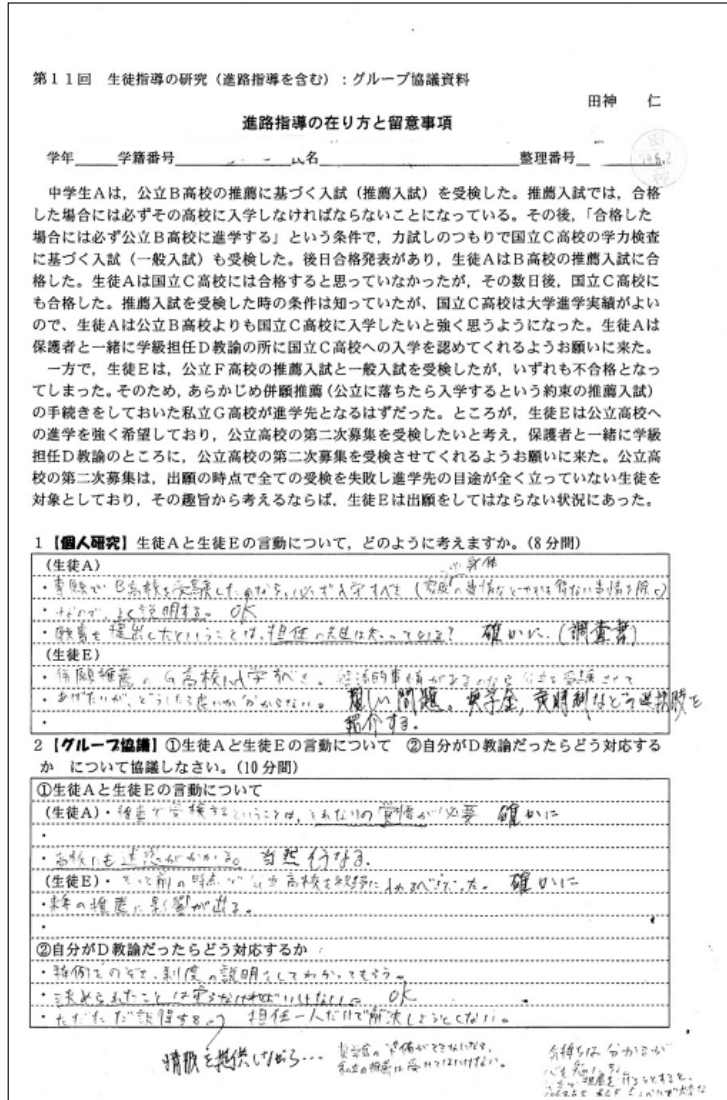 第11回 生徒指導の研究（進路指導を含む）：グループ協議資料
田神 仁
進路指導の在り方と留意事項
学年 学籍番号 名 整理番号
中学生Aは，公立B高校の推薦に基づく入試（推薦入試）を受検した。推薦入試では，合格
した場合には必ずその高校に入学しなければならないことになっている。その後，「合格した
場合には必ず公立B高校に進学する」という条件で，力試しのつもりで国立C高校の学力検査
に基づく入試（一般入試）も受検した。後日合格発表があり，生徒AはB高校の推薦入試に合
格した。生徒Aは国立C高校には合格すると思っていなかったが，その数日後，国立C高校に
も合格した。推薦入試を受検した時の条件は知っていたが，国立C高校は大学進学実績がよい
ので、生徒Aは公立B高校よりも国立C高校に入学したいと強く思うようになった。生徒Aは
保護者と一緒に学級担任D教諭の所に国立C高校への入学を認めてくれるようお願いに来た。
一方で，生徒Eは，公立F高校の推薦入試と一般入試を受検したが，いずれも不合格となっ
てしまった。そのため，あらかじめ併願推薦（公立に落ちたら入学するという約束の推薦入試）
の手続きをしておいた私立G高校が進学先となるはずだった。ところが，生徒Eは公立高校へ
の進学を強く希望しており，公立高校の第二次募集を受検したいと考え，保護者と一緒に学級
担任D教諭のところに，公立高校の第二次募集を受検させてくれるようお願いに来た。公立高
校の第二次募集は，出願の時点で全ての受検を失敗し進学先の目途が全く立っていない生徒を
対象としており，その趣旨から考えるならば，生徒Eは出願をしてはならない状況にあった。
1【個人研究】生徒Aと生徒Eの言動について，どのように考えますか。（8分間）
（生徒A）
・専願でB高校を受験したのなら，必ず入学すべき
・なので，よく説明する。 OK
・願書を提出したということは，担任の先生は 確かに.（調査書）
（生徒E）
・併願推薦のG高校に入学すべき。経済的事情があるのなら
・あげたいが，どうしたら良いか分からない。 難しい問題。奨学金，定時制などの選択肢を
・ 紹介する.
2【グループ協議】①生徒Aと生徒Eの言動について ②自分がD教諭だったらどう対応する
か について協議しなさい。（10分間）
①生徒Aと生徒Eの言動について
（生徒A）・推薦で受検するということは，それなりの覚悟が必要 確かに
・
・高校にも迷惑がかかる。 当然そうなる.
（生徒E）・ 確かに
・来年の推薦に影響が出る。
・
②自分がD教諭だったらどう対応するか
・特例をのぞき，制度の説明をしてわかってもらう。
・決められたことは守らなければいけない。 OK
・ただただ説得する。 担任一人だけで解決しようとしない。
情報を提供しながら…